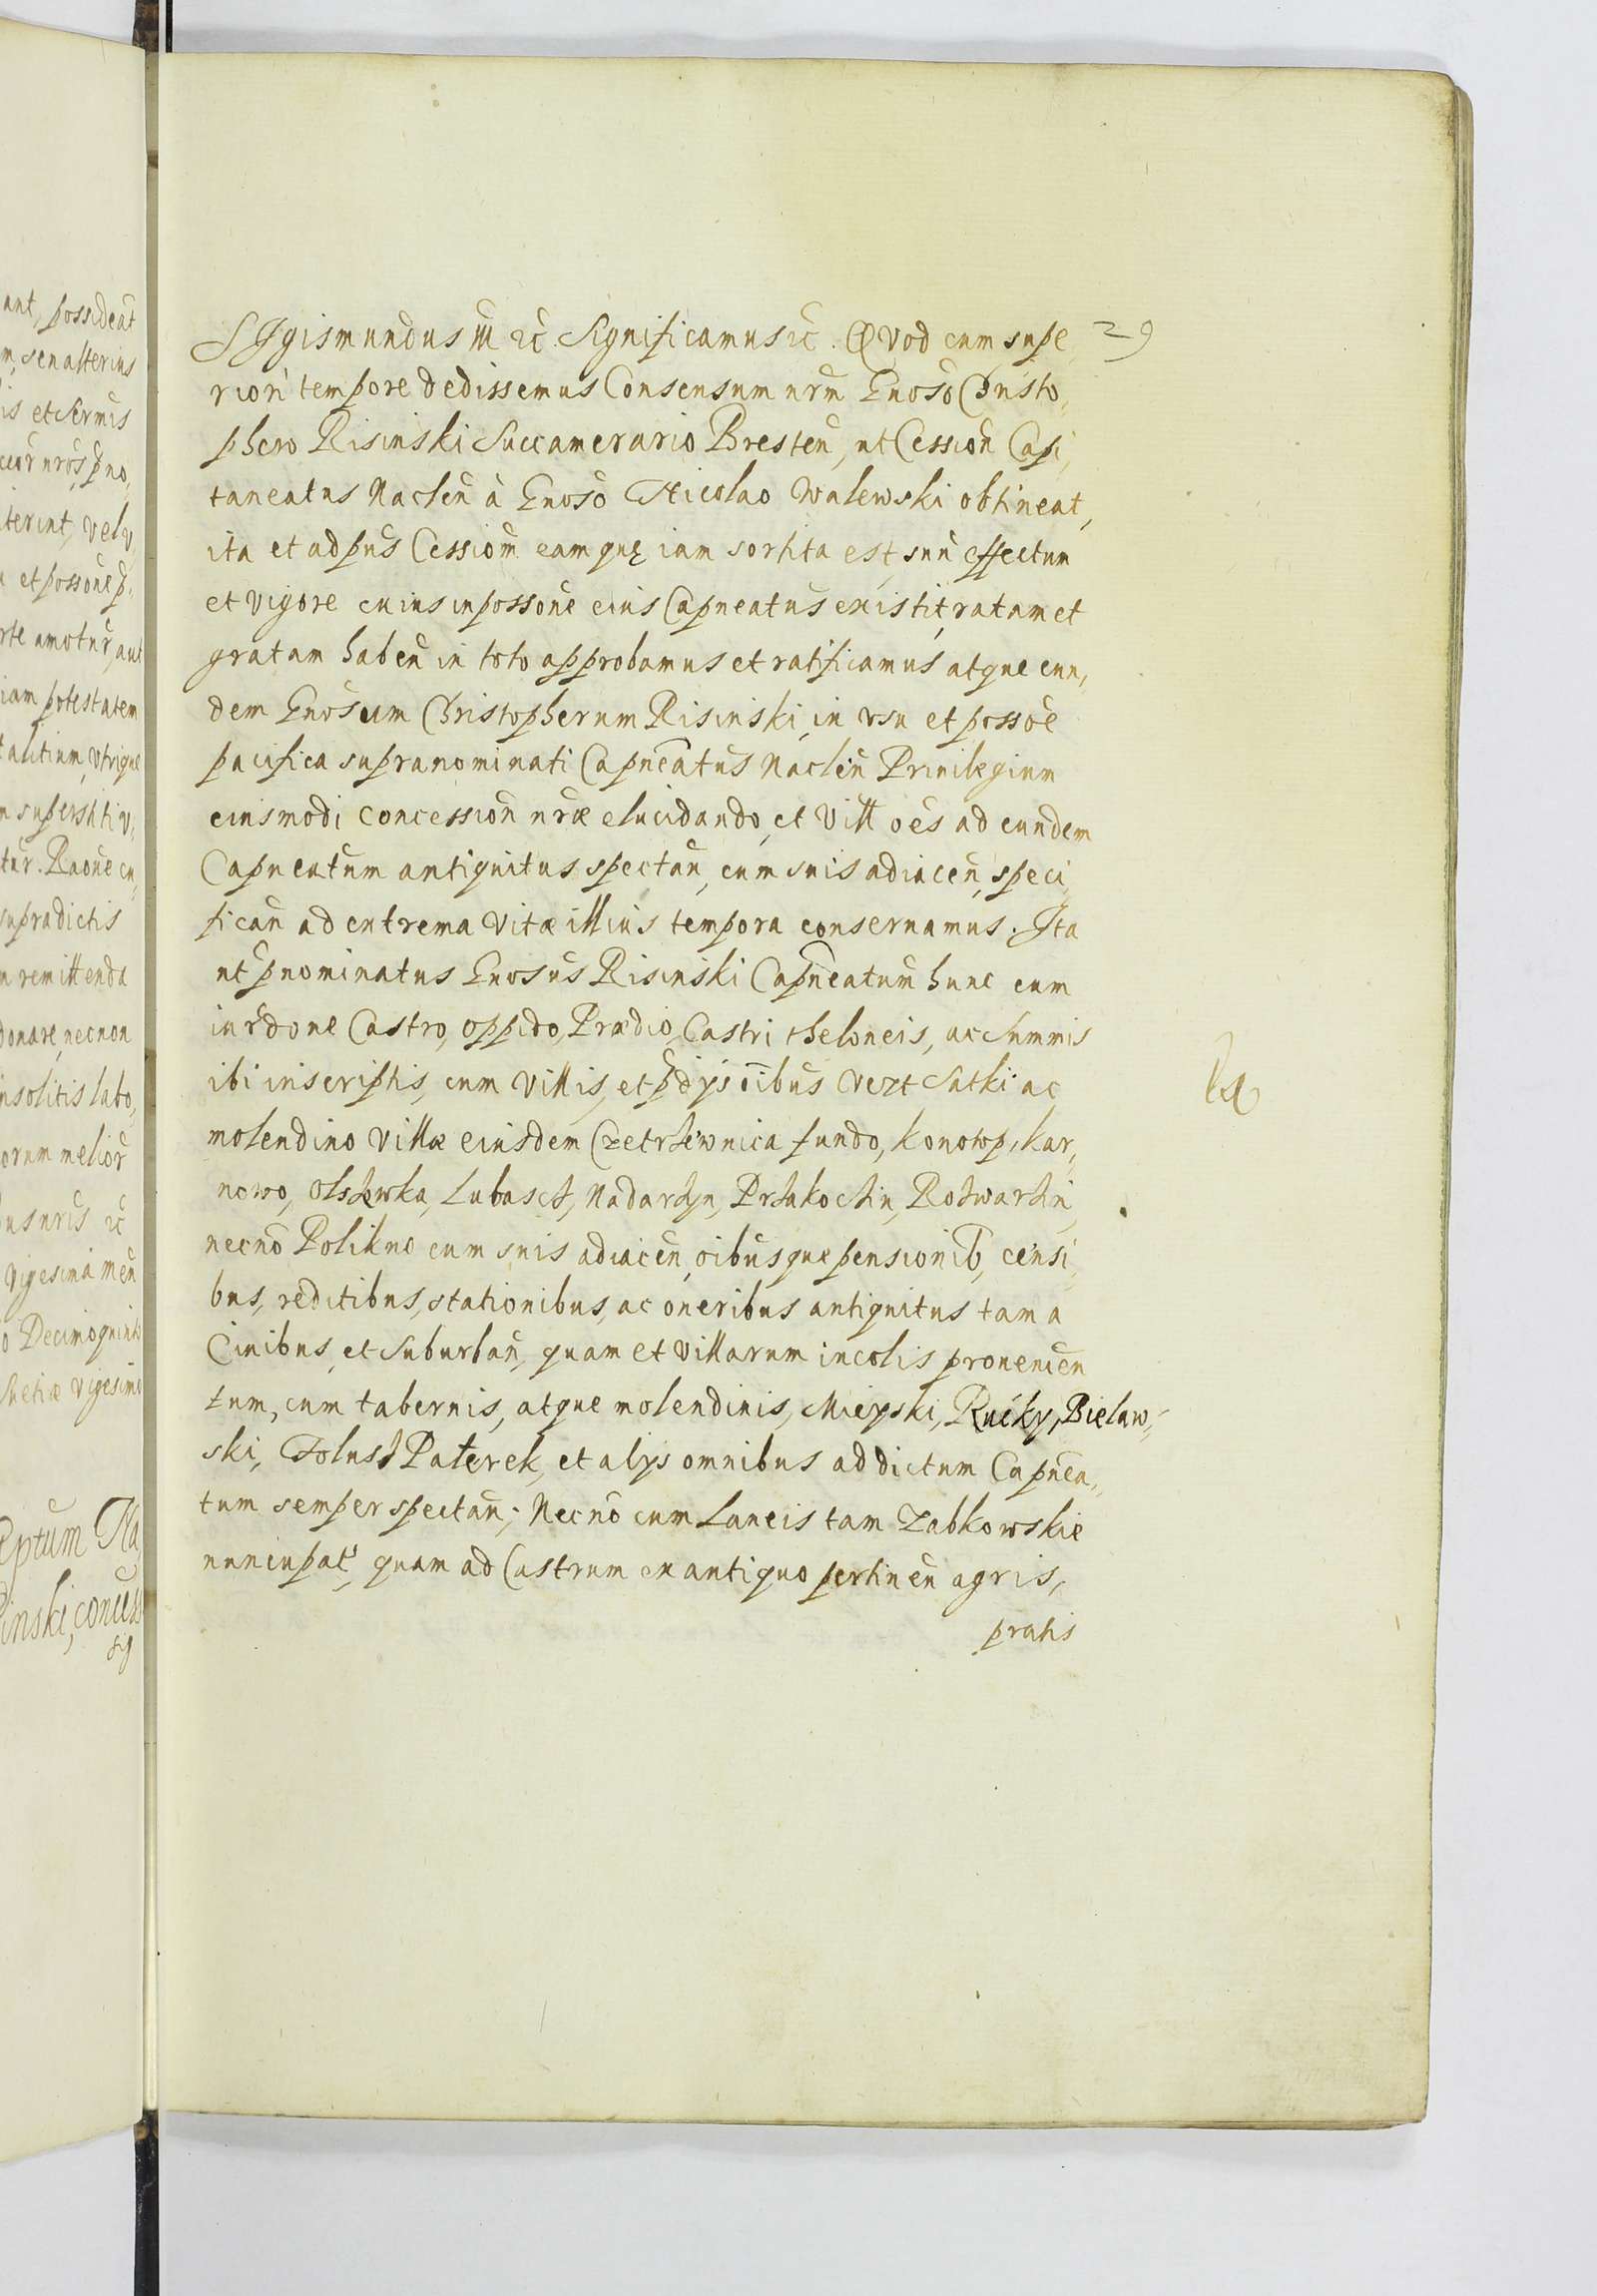 ant, possideat̃
m, seu alterius
is et Seruis
ccor̃ nros̃, p̃no,
iterint, vel v
et possone p̃
rte amotur̃, aut
iam potestatem
talitium, Vtrique
superstiti v,
tur̃. Raone cu,
supradictis
remittenda
donare, necnon
insolitis labo,
orum melior̃
nris̃ ꝛc̃
vigesima men̄
o Decimoquinto
Suetiæ vigesimo
inski, concess
sig
SIgismundus III ꝛc̃. Significamus ꝛc̃. QVod cum supe 29
riori tempore dedissemus Consensum nrm̃ Gnoso Christo,
phero Risinski Succamerario Bresten̄, ut Cession̄ Capi,
taneatus Naclen̄ à Gnoso Nicolao Walewski obtineat,
ita et ad pn̄s Cessiom̃ eam quę iam sortita est suu̅ effectum
et vigore cuius in possone eius Capneatus existit, ratam et
gratam haben̄ in toto approbamus et ratificamus atque eun,
dem Gnosum Christopherum Risinski, in vsu et possoe
pacifica supranominati Capneatus Naclen̄ Priuilegium
eiusmodi concession̄ nræ elucidando, et Vill oẽs ad eundem
Capneatum antiquitus spectan̄, cum suis adiacen̄, speci,
fican̄ ad extrema Vitæ illius tempora conseruamus. Ita
ut p̃nominatus Gnosus Risinski Capneatum hunc cum
iurdone Castro, oppido, Prædio, Castri theloneis, ac Summis
ibi inscriptis, cum Villis, et p̃dijs oĩbus Vezt Satki ac
molendino Villæ eiusdem Czetrżewnica fundo, Konotop, Kar,
nowo, Olszewka, Lubascz, Nadarzyn, Przakoczin, Rozwarzin,
necnõ Polikno cum suis adiacen̄, oĩbusque pensionib, censi,
bus, reditibus, stationibus, ac oneribus antiquitus tam a
Ciuibus, et Suburban̄, quam et Villarum incolis prouenien
tum, cum tabernis, atque molendinis, Mieyski, Rucky, Bielaw,
ski, Tolusz Paterek, et alijs omnibus ad dictum Capnea,
tum semper spectan̄; Necnõ cum Laneis tam Zabkowskie
nuncupat, quam ad Castrum ex antiquo pertinen̄ agris,
pratis